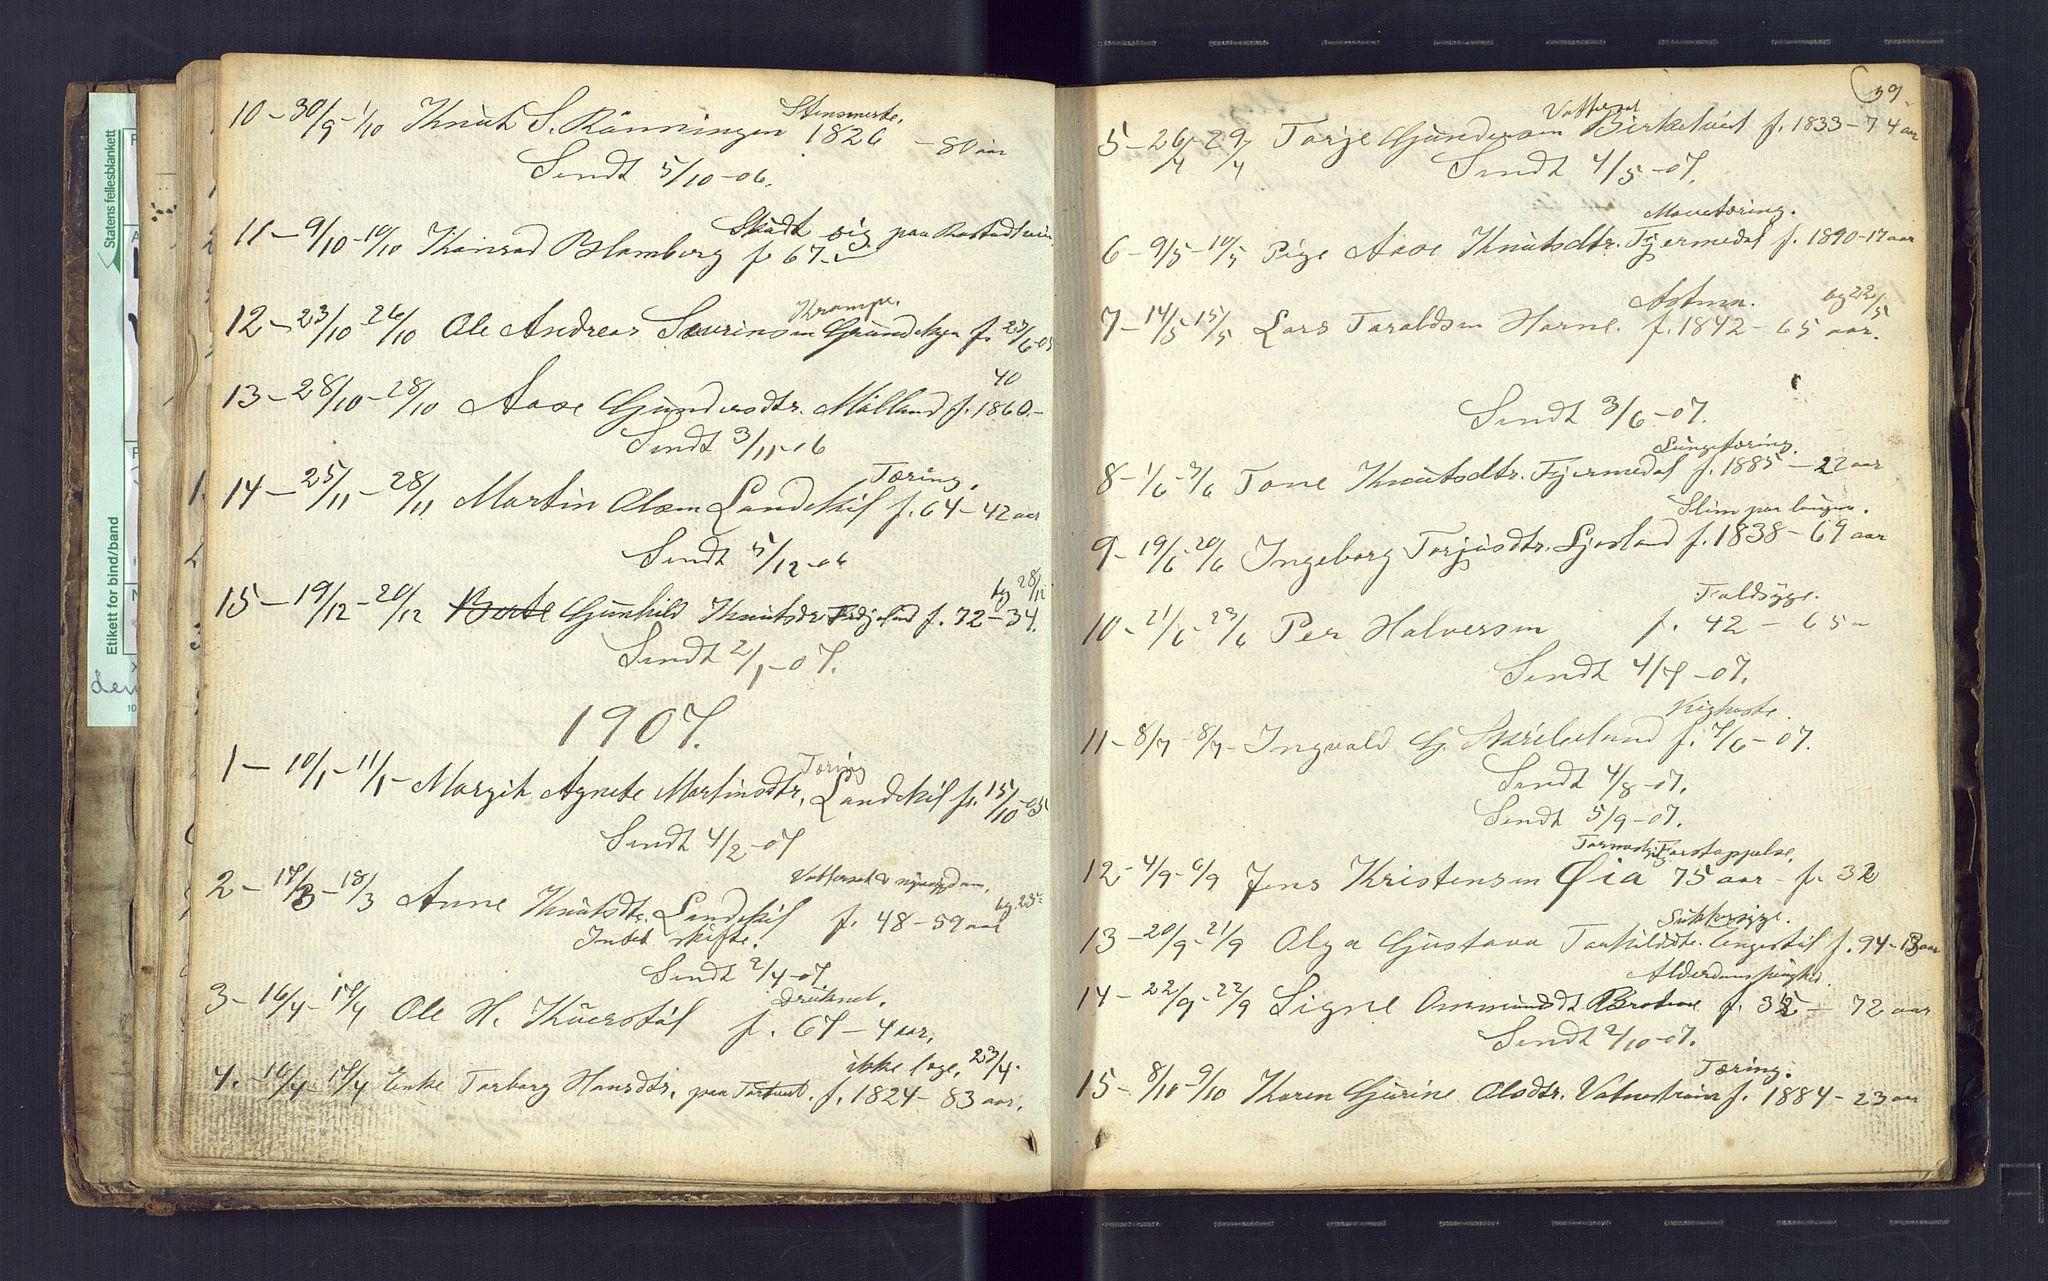 Stensmerte,
10 – 30/9 – 1/10 Knut S. Rönningen 1826 – 80 aar
Sendt 5/10 – 06.
Skudt sig paa
11 – 9/10 – 10/10 Konrad Blomberg f. 67.
Krampe,
12 – 23/10 – 26/10 Ole Andreas Severinsen f. 23/6-05
40
13 – 28/10 – 28/10 Aase Gundersdtr. Mölland f. 1860. –
Sendt 3/11 – 06
Tæring,
14 – 25/11 – 28/11 Martin Olsen Landekil f. 64 – 42 aar
Sendt 5/12 – 06
bg 28/12
15 – 19/12 – 20/12 Berte Gunhild Knutsdtr f. 72 – 34.
Sendt 2/1 – 07.
1907.
Tæring
1 – 10/1 – 11/1 – Margit Agnete Martinsdtr, Landekil f. 15/10 – 05
Sendt 4/2 – 07
Vattersot &
bg. 25
2 – 17/3 – 18/3 Anne Knutsdtr. Landekil f. 48 – 59 aar
Intet skifte.
Sendt 2/4 – 07.
druknet,
3 – 16/4 – 17/4 Ole H. f. 67 – 4 aar.
ikke læge, 23/4.
4. – 16/4 – 17/4 Enke Torborg Hansdtr, paa f. 1824 – 83 aar.
39.
Vattersot
5 – 26/4 – 29/4 Torje Gundersen Birketveit f. 1833 – 74 aar
Sendt 4/5 – 07.
Mavetæring.
6 – 9/5 – 10/5 Pige Aase Knutsdtr. Fjermedal f. 1890 – 17 aar
Astma. bg 22/5
7 – 14/5 – 15/5 Lars Taraldsen Horne. f. 1842 – 65 aar.
Sendt 3/6 – 07.
Lungetæring,
8 – 1/6 – 3/6 Tone Knutsdtr. Fjermedal f. 1885 – 22 aar
Slim paa lungen.
9 – 19/6 – 20/6 Ingeborg Torjusdtr. Ljosland f. 1838 – 69 aar
Faldsyge.
10 – 21/6 – 23/6 Per Halvorsen f. 42 – 65 –
Sendt 4/7 – 07.
Kighoste.
11 – 8/7 – 8/7 – Ingvald G. Skribeland f. 7/6 – 07.
Sendt 4/8 – 07.
Sendt 5/9 – 07.
Forstoppelse,
12 – 4/9 – 6/9 Jens Kristensen Øia 75 aar – f. 32
Sukkersyge.
13 – 20/9 – 21/9 Olga Gustava Torkildsdtr. f. 94 – 13 aar
Alderdomssvaghed.
14 – 22/9 – 22/9 Signe Ommundsdt f. 35 – 72 aar
Sendt 2/10 – 07.
Tæring.
15 – 8/10 – 9/10 Karen Gurine Olsdtr. Vatnestrøm f. 1884 – 23 aar
Statens fellesblankett
Etikett for bind/band